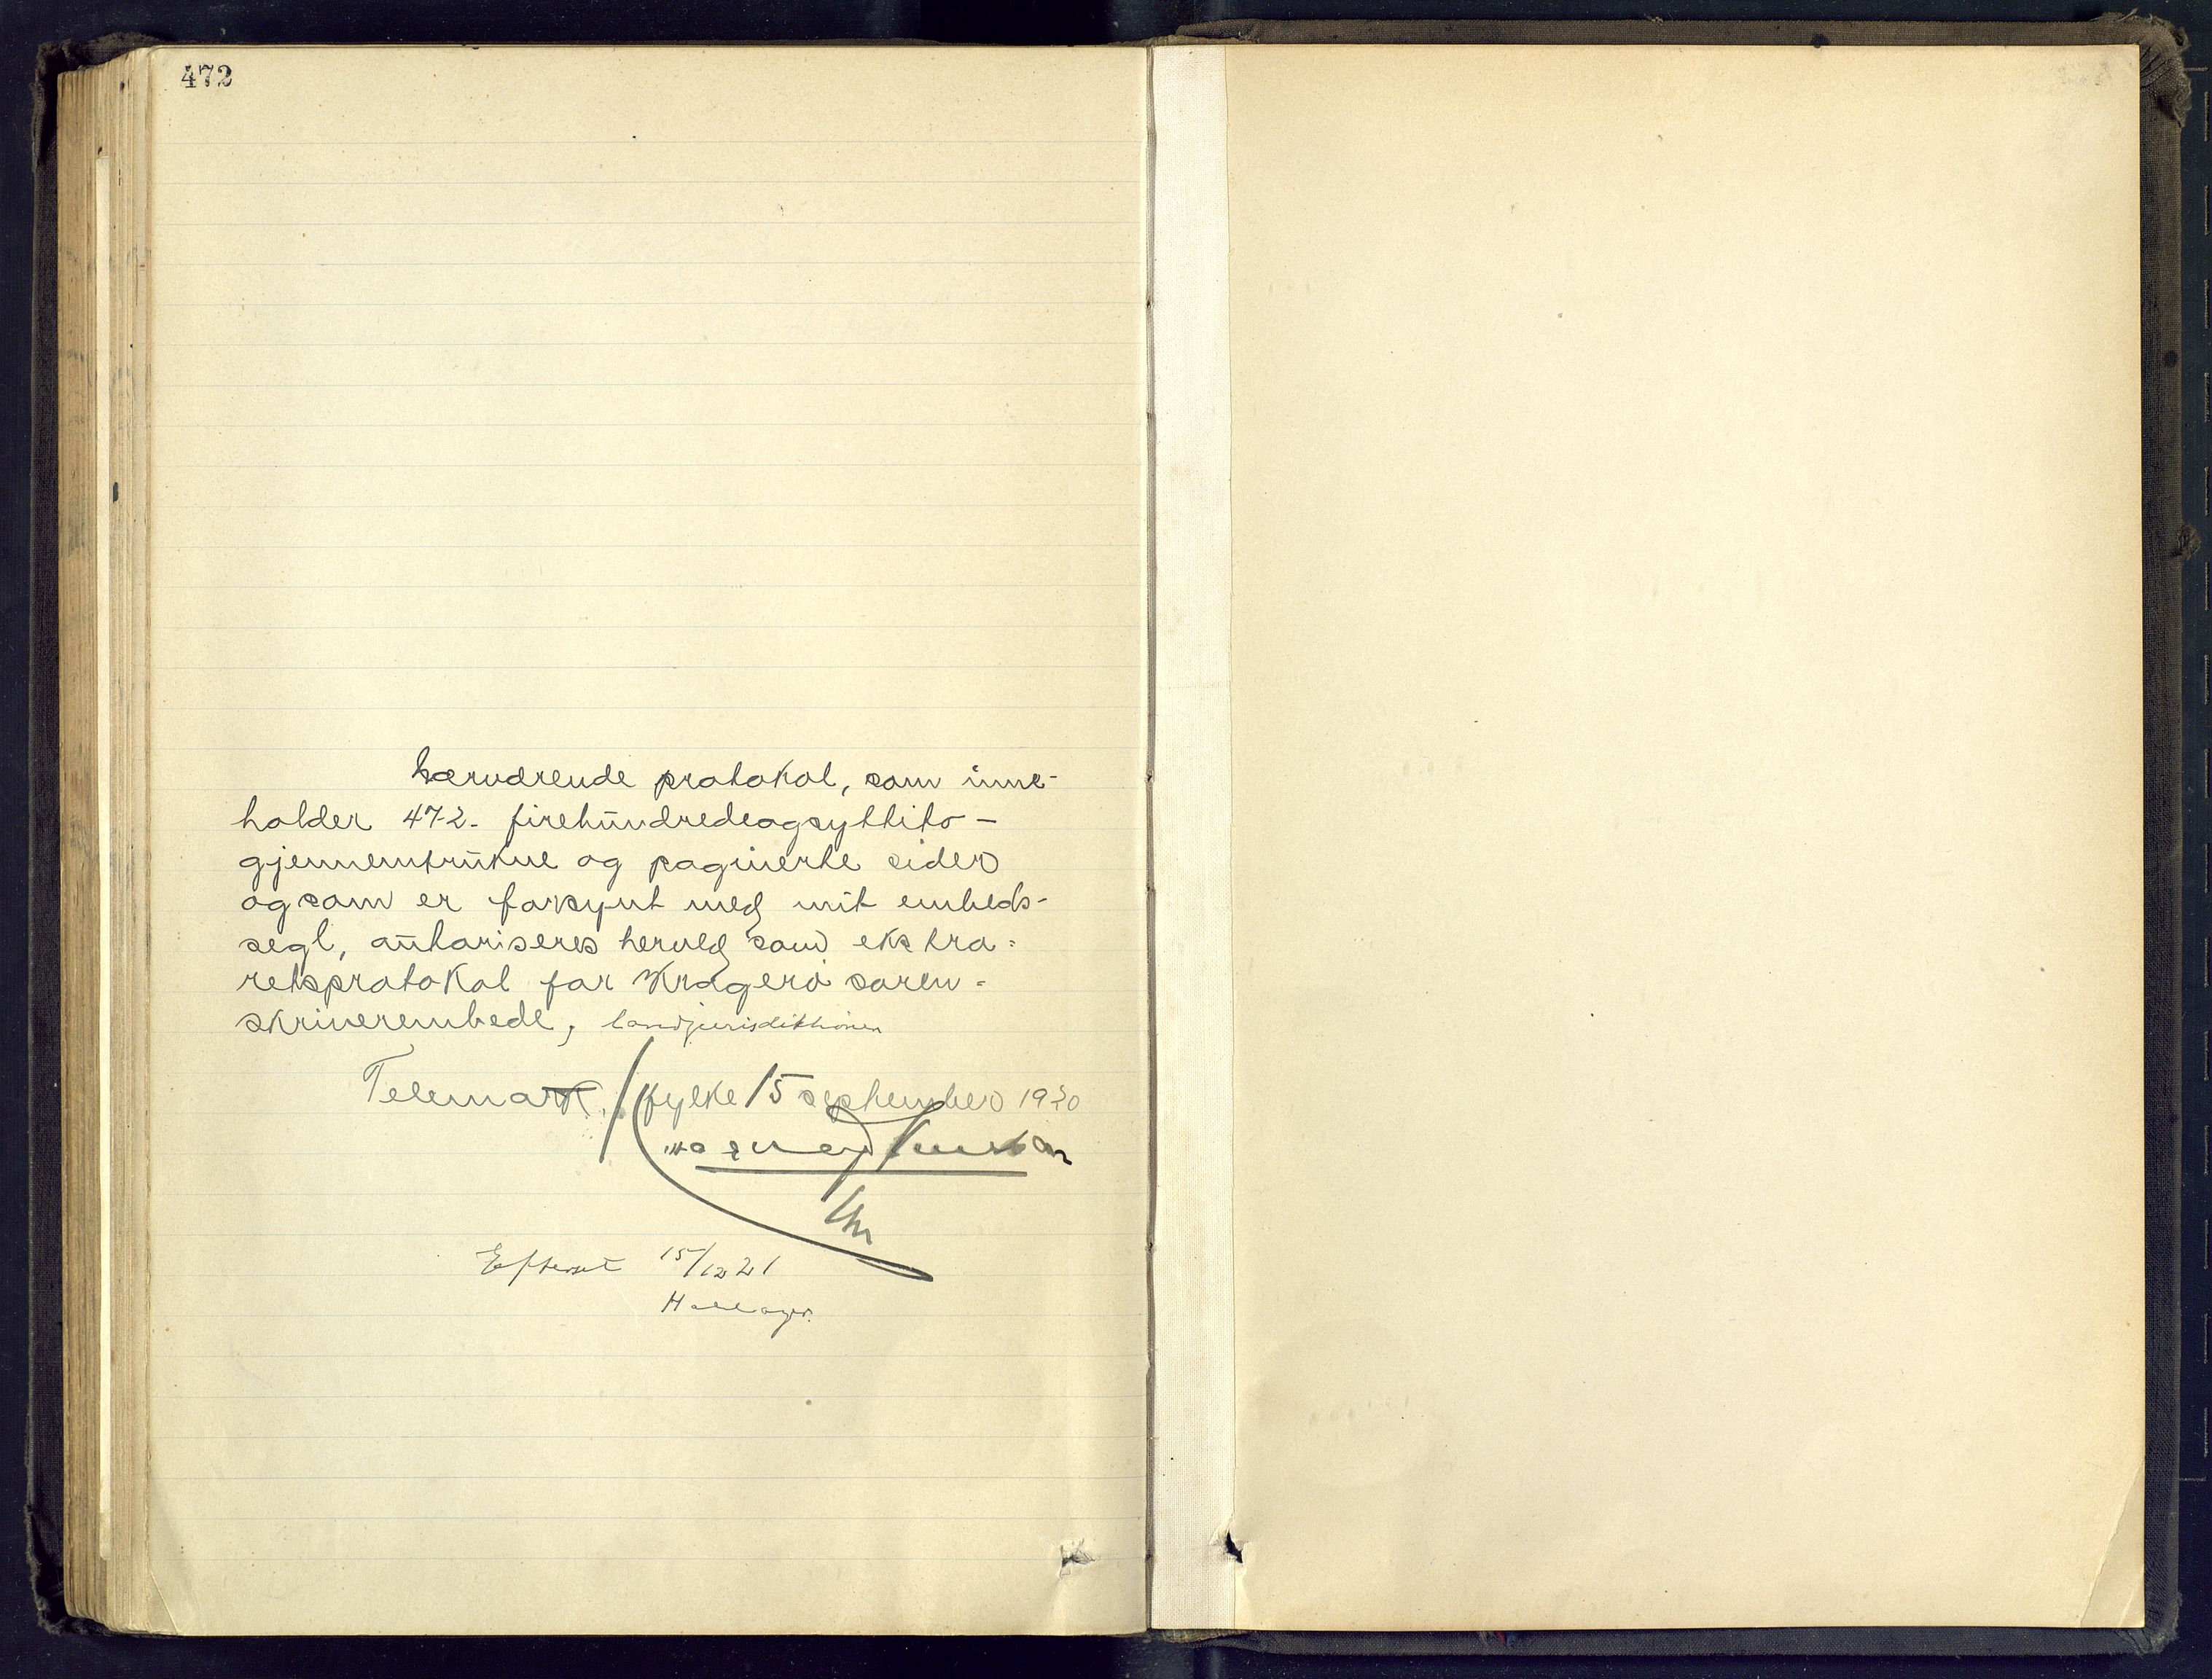 472
Hærværende protokol, som inne-
holder 472 - firehundredeogsyttito -
gjennemtrukne og paginerte sider
og som er forsynt med mit embeds-
segl, autoriseres herved som ekstra-
retsprotokol for Kragerø soren-
skriverembede, landjurisdiktionen
Telemark fylke 15 september 1920
Efterset 15/12 21